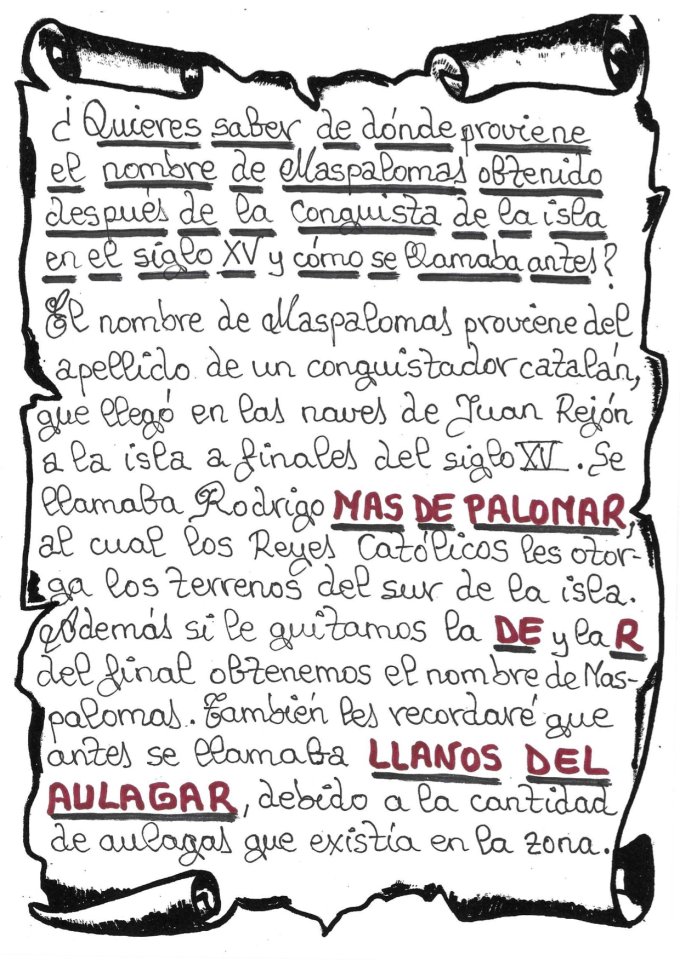 ¿Quieres saber de dónde proviene
el nombre de Maspalomas obtenido
después de la conquista de la isla
en el siglo XV y cómo se llamaba antes?
El nombre de Maspalomas proviene del
apellido de un conquistador catalán,
que llegó en las naves de Juan Rejón
a la isla a finales del siglo XV. Se
llamaba Rodrigo MAS DE PALOMAR,
al cual los Reyes Católicos les otor-
ga los terrenos del sur de la isla.
Además si le quitamos la DE y la R
del final obtenemos el nombre de Mas-
palomas. También les recordaré que
antes se llamaba LLANOS DEL
AULAGAR, debido a la cantidad
de aulagas que existía en la zona.